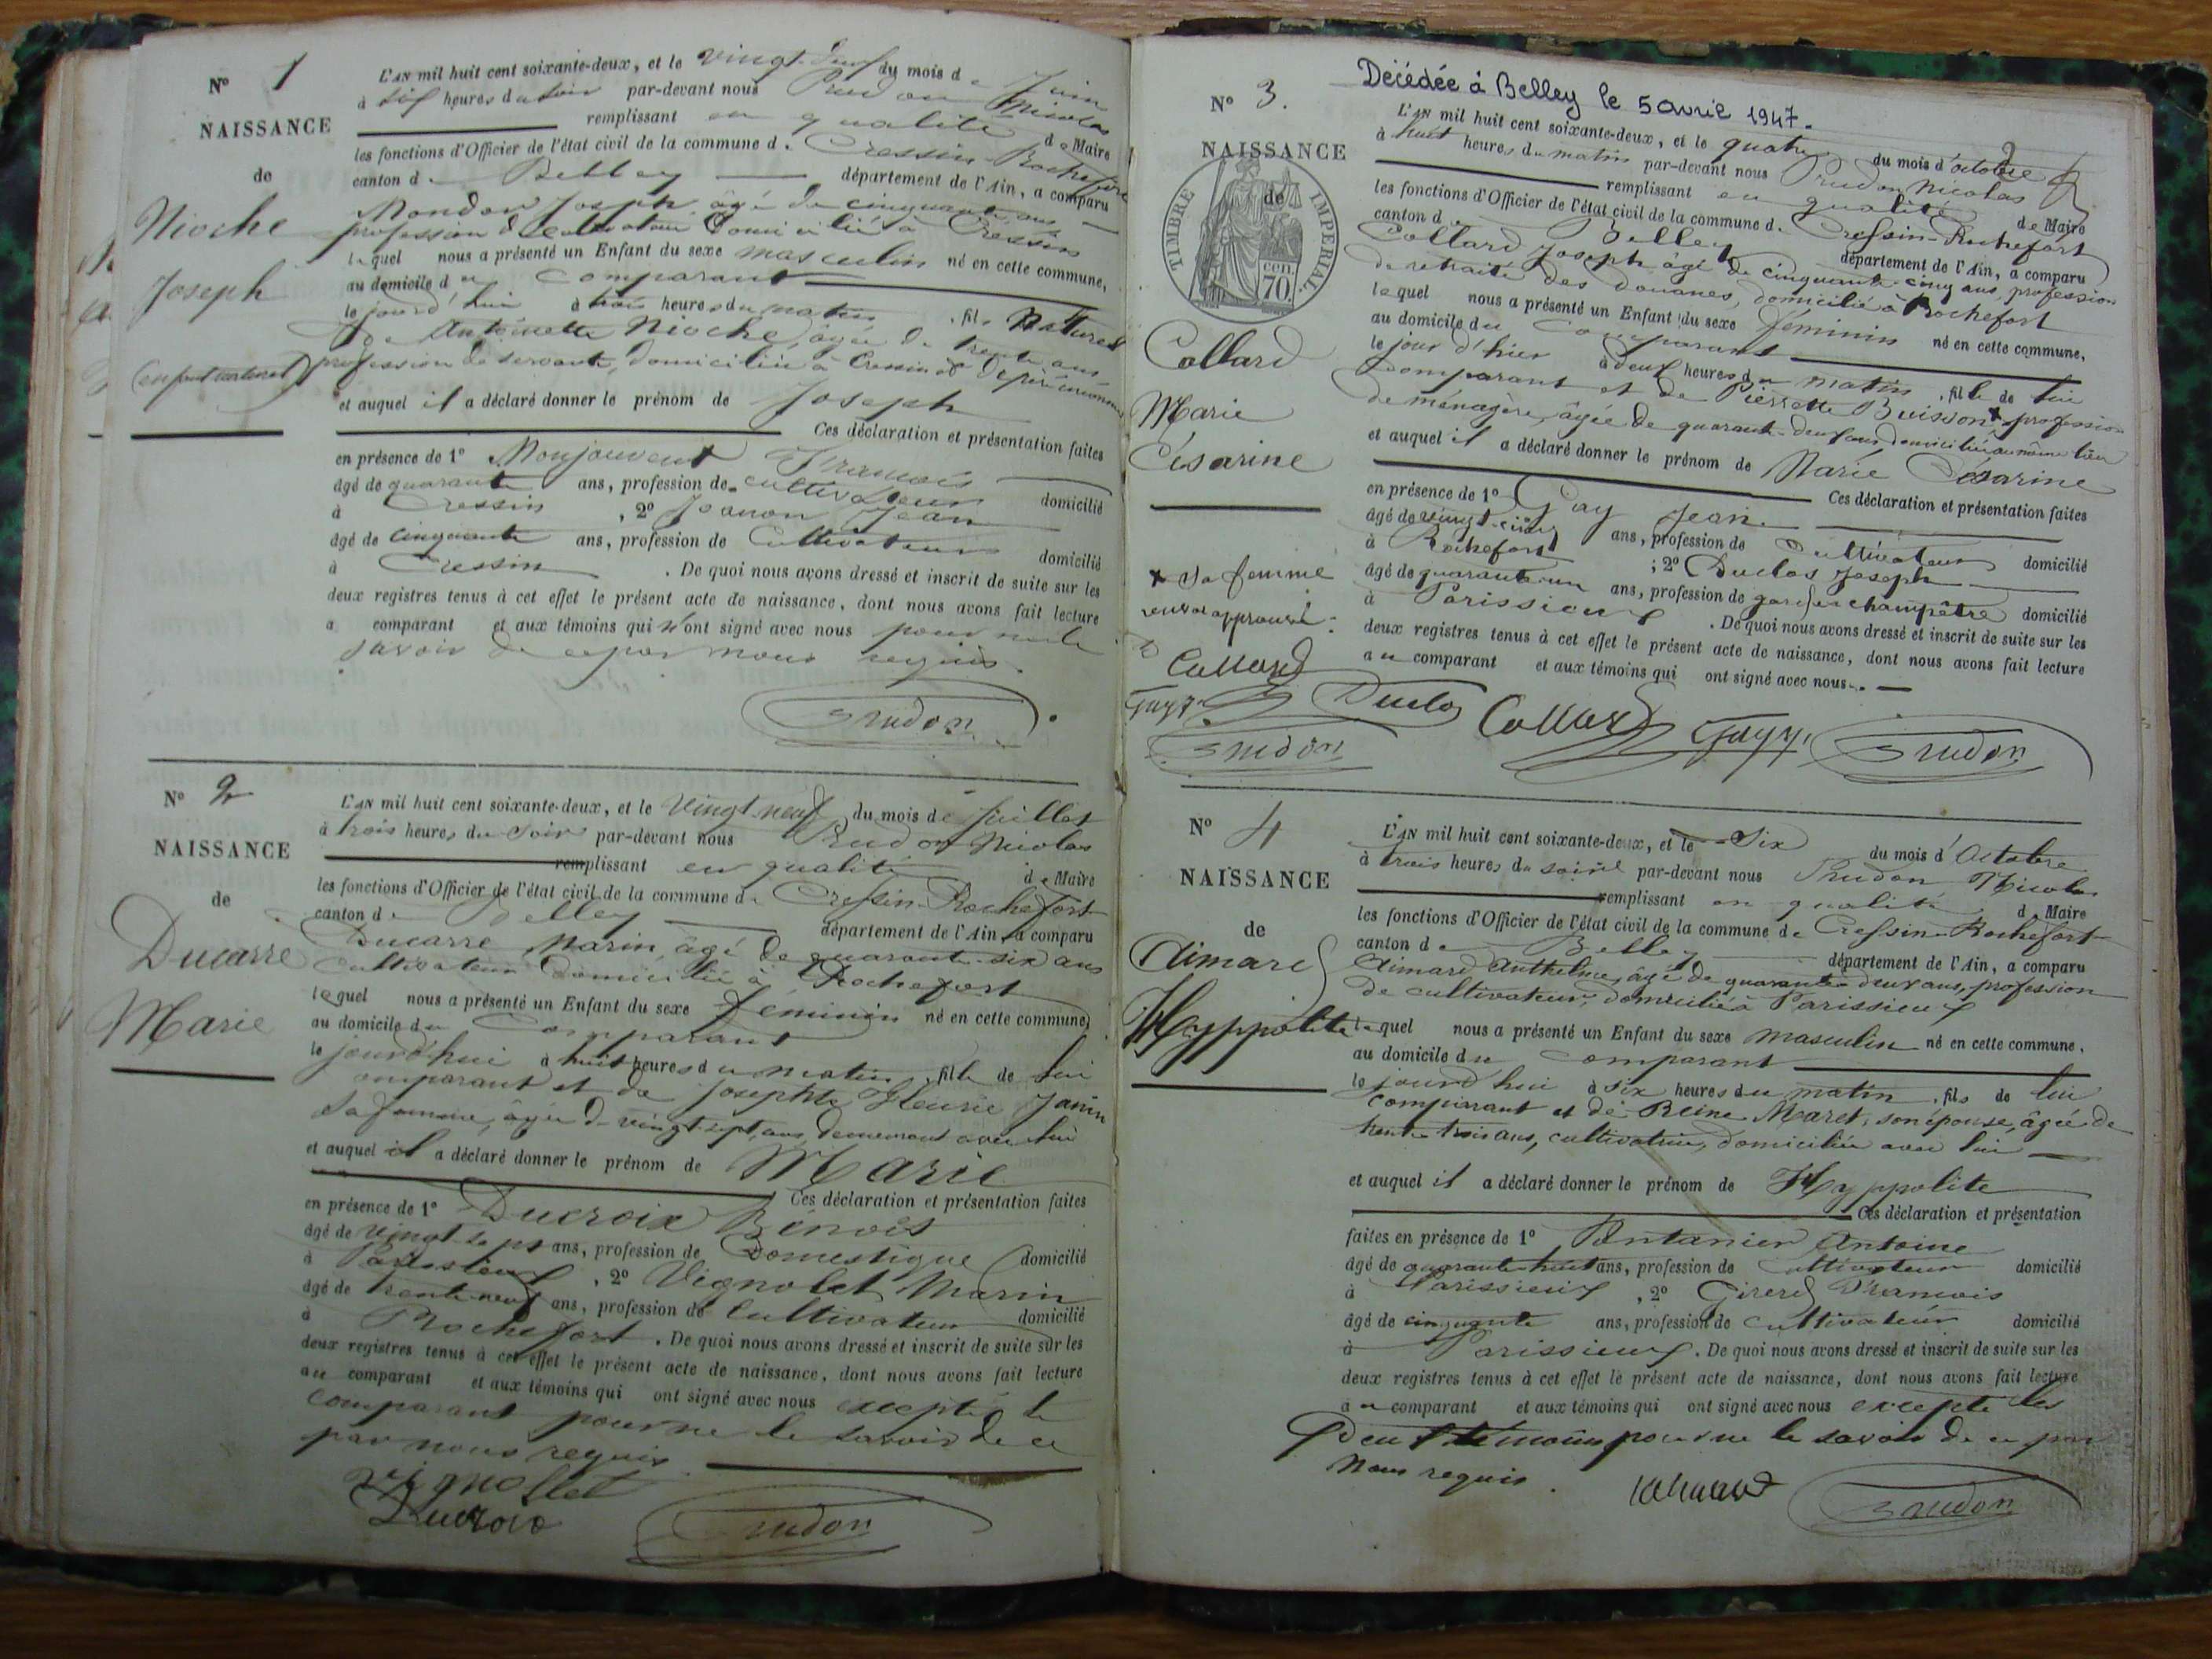 N° 1
NAISSANCE
de
Nioche
Joseph
(enfant naturel)
L'AN mil huit cent soixante-deux, et le vingt deux du mois de Juin
à six heures du soir par-devant nous Prudon Nicolas
remplissant en qualité de Maire
les fonctions d'Officier de l'état civil de la commune de Cressin-Rochefort
canton de Belley département de l'Ain, a comparu
Mondon Joseph, âgé de cinquante ans
profession de cultivateur domicilié à Cressin
lequel nous a présenté un Enfant du sexe masculin né en cette commune,
au domicile du comparant
le jourd'hui à trois heures du matin, fils Naturel
de Antoinette Nioche, âgée de trente ans,
profession de servante, domiciliée à Cressin et de père inconnu
et auquel il a déclaré donner le prénom de Joseph
Ces déclaration et présentation faites
en présence de 1° Monjouvent François
âgé de quarante ans, profession de cultivateur domicilié
à Cressin, 2° Jean
âgé de cinquante ans, profession de Cultivateur domicilié
à Cressin. De quoi nous avons dressé et inscrit de suite sur les
deux registres tenus à cet effet le présent acte de naissance, dont nous avons fait lecture
a comparant et aux témoins qui n'ont signé avec nous pour ne le
savoir de ce par nous requis.
Prudon
N° 2
NAISSANCE
de
Ducarre
Marie
L'AN mil huit cent soixante-deux, et le vingt neuf du mois de Juillet
à trois heures du Soir par-devant nous Prudon Nicolas
remplissant en qualité de Maire
les fonctions d'Officier de l'état civil de la commune de Cressin-Rochefort
canton de Belley département de l'Ain, a comparu
Ducarre Marin, âgé de quarante-six ans
cultivateur domicilié à Rochefort
lequel nous a présenté un Enfant du sexe féminin né en cette commune,
au domicile du comparant
le jourd'hui à huit heures du matin, fille de lui
comparant et de Josephte Fleurie Janin
sa femme, âgée de vingt sept ans, demeurant avec lui
et auquel il a déclaré donner le prénom de Marie
Ces déclaration et présentation faites
en présence de 1° Ducroix Bénoit
âgé de vingt sept ans, profession de Domestique domicilié
à Parissieux, 2° Vignolet Marin
âgé de trente-neuf ans, profession de Cultivateur domicilié
à Rochefort. De quoi nous avons dressé et inscrit de suite sur les
deux registres tenus à cet effet le présent acte de naissance, dont nous avons fait lecture
au comparant et aux témoins qui ont signé avec nous excepté le
comparant pour ne le savoir de ce
par nous requis
Vignollet
Ducroix
Prudon
Décédée à Belley le 5 avril 1947.
N° 3.
NAISSANCE
de
TIMBRE IMPERIAL.
cen.
70.
Collard
Marie
Césarine
L'AN mil huit cent soixante-deux, et le quatre du mois d'octobre
à huit heures du matin par-devant nous Prudon Nicolas
remplissant en qualité de Maire
les fonctions d'Officier de l'état civil de la commune de Cressin-Rochefort
canton de Belley département de l'Ain, a comparu
Collard Joseph âgé de cinquante-cinq ans, profession
de retraité des douanes, domicilié à Rochefort
lequel nous a présenté un Enfant du sexe féminin né en cette commune,
au domicile du comparant
le jour d'hier à deux heures du matin, fille de lui
comparant et de Pierrette Buisson + profession
de ménagère, âgée de quarante-deux ans domiciliée au même lieu
et auquel il a déclaré donner le prénom de Marie Césarine
Ces déclaration et présentation faites
en présence de 1° Gay Jean
âgé de vingt-cinq ans, profession de Cultivateur domicilié
à Rochefort; 2° Duclos Joseph
âgé de quarante-un ans, profession de garde champêtre domicilié
à Parissieux. De quoi nous avons dressé et inscrit de suite sur les
deux registres tenus à cet effet le présent acte de naissance, dont nous avons fait lecture
au comparant et aux témoins qui ont signé avec nous.
+ sa femme
renvoi approuvé.
Collard
Gayy
Prudon
Duclos Collard Gayy. Prudon
N° 4
NAISSANCE
de
Aimard
Hyppolite
L'AN mil huit cent soixante-deux, et le Six du mois d'Octobre
à trois heures du soir par-devant nous Prudon Nicolas
remplissant en qualité de Maire
les fonctions d'Officier de l'état civil de la commune de Cressin-Rochefort
canton de Belley département de l'Ain, a comparu
Aimard Anthelme, âgé de quarante-deux ans, profession
de cultivateur, domicilié à Parissieux
lequel nous a présenté un Enfant du sexe masculin né en cette commune,
au domicile du comparant
le jourd'hui à six heures du matin, fils de lui
comparant et de Reine Maret, son épouse, âgée de
trente-trois ans, cultivatrice, domiciliée avec lui
et auquel il a déclaré donner le prénom de Hyppolite
Ces déclaration et présentation
faites en présence de 1° Pantanier Antoine
âgé de quarante-huit ans, profession de cultivateur domicilié
à Parissieux, 2° Girerd François
âgé de cinquante ans, profession de cultivateur domicilié
à Parissieux. De quoi nous avons dressé et inscrit de suite sur les
deux registres tenus à cet effet le présent acte de naissance, dont nous avons fait lecture
au comparant et aux témoins qui ont signé avec nous excepté les
Deux témoins pour ne le savoir de ce par
Nous requis.
Prudon